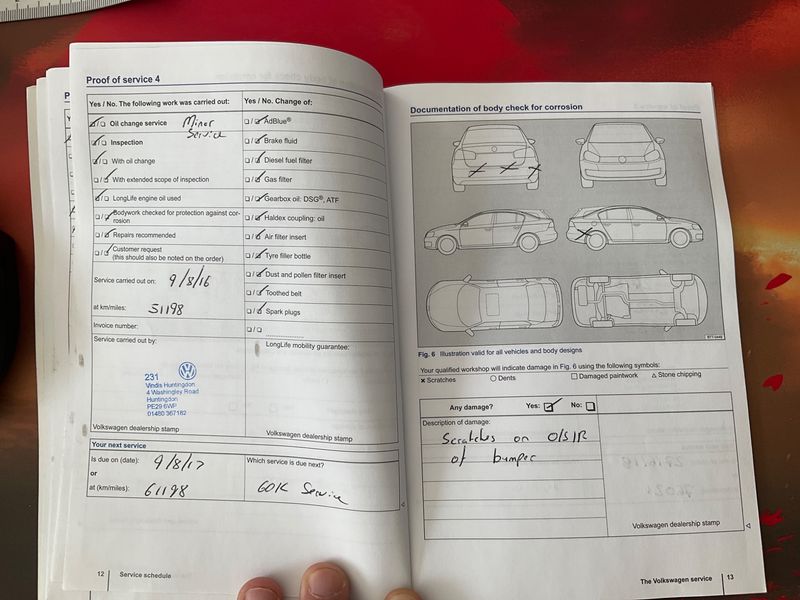 Proof of service 4
Yes / No. The following work was carried out:
Oil change service Minor Service
Inspection
With oil change
With extended scope of inspection
LongLife engine oil used
Bodywork checked for protection against cor-
rosion
Repairs recommended
Customer request
(this should also be noted on the order)
Service carried out on: 9/8/16
at km/miles: 51198
Invoice number:
Service carried out by:
231
Vindis Huntingdon
4 Washingley Road
Huntingdon
PE29 6WP
01480 367162
Volkswagen dealership stamp
Yes / No. Change of:
AdBlue®
Brake fluid
Diesel fuel filter
Gas filter
Gearbox oil: DSG®, ATF
Haldex coupling: oil
Air filter insert
Tyre filler bottle
Dust and pollen filter insert
Toothed belt
Spark plugs
LongLife mobility guarantee:
Volkswagen dealership stamp
Your next service
Is due on (date): 9/8/17
or
at (km/miles): 61198
Which service is due next?
60K Service
12 Service schedule
Documentation of body check for corrosion
Fig. 6 Illustration valid for all vehicles and body designs
Your qualified workshop will indicate damage in Fig. 6 using the following symbols:
× Scratches ○ Dents □ Damaged paintwork △ Stone chipping
Any damage? Yes: No:
Description of damage:
Scratches on O/S/R
of bumper
Volkswagen dealership stamp
The Volkswagen service 13